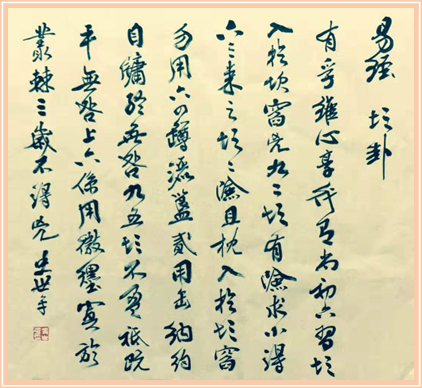 易經 坎卦
有孚維心亨行有尚初六習坎
入於坎窞兇九二坎有險求小得
六三來之坎〻險且枕入於坎窞
勿用六四樽酒簋貳用缶納約
自牖終無咎九五坎不盈祗既
平無咎上六係用徽纆寘於
叢棘三歲不得兇